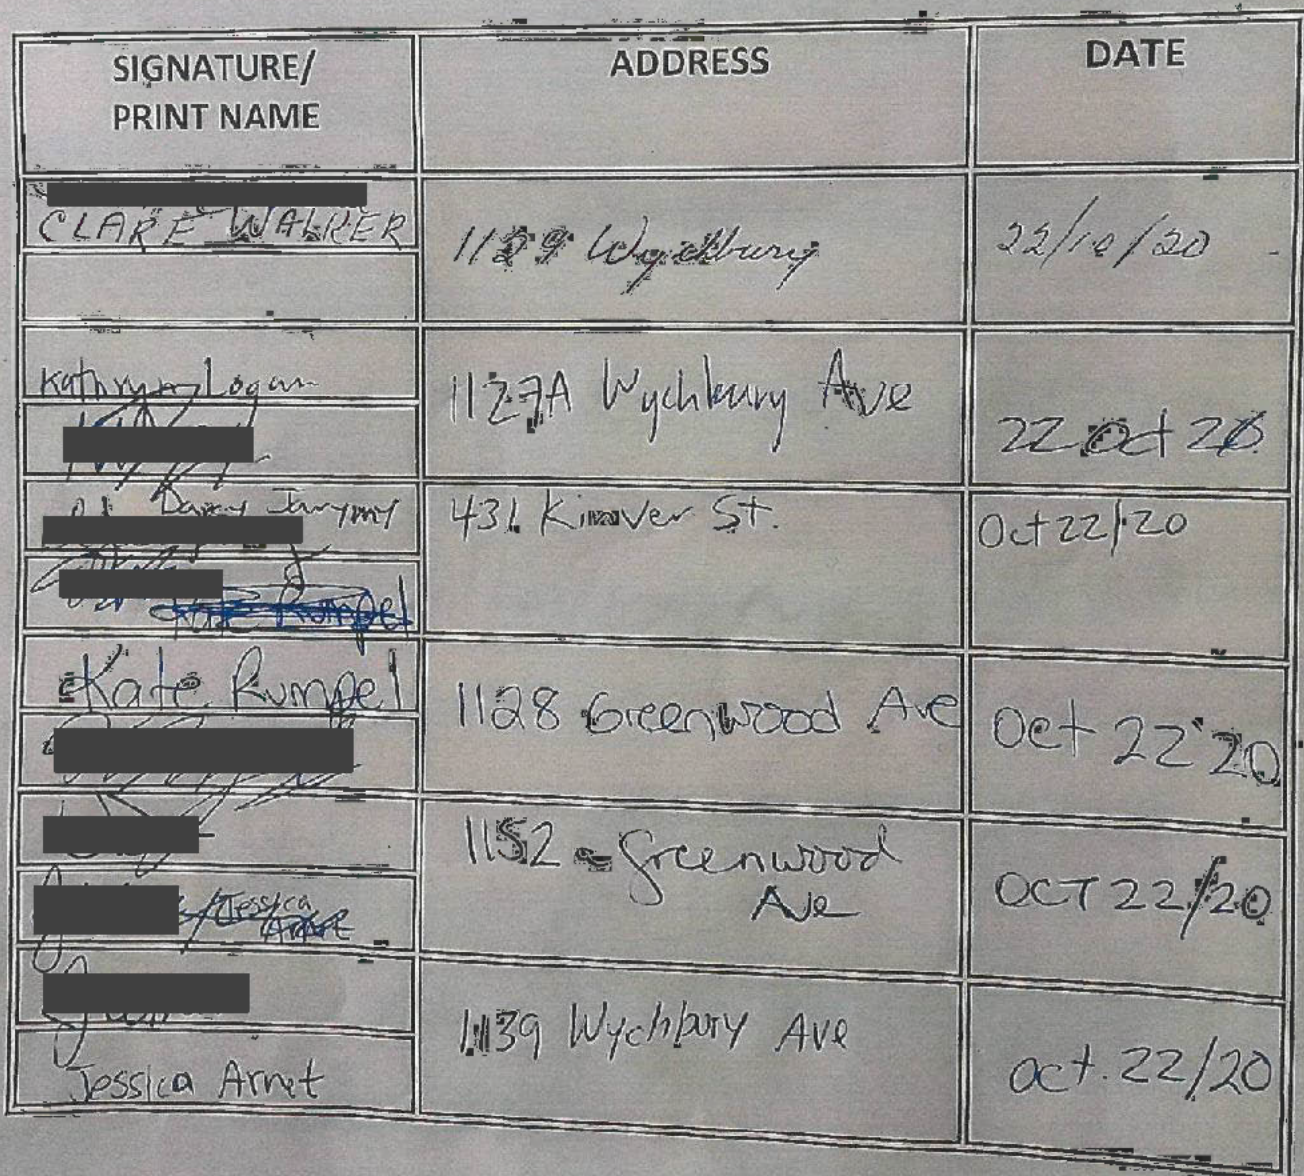 SIGNATURE/
PRINT NAME
ADDRESS
DATE
CLARE WALKER
1129 Wychbury
22/10/20
Kathryn Logan
1127A Wychbury Ave
22 Oct 20
Darcy Jarymy
431 Kinver St.
Oct 22/20
Kate Rumpel
Kate Rumpel
1128 Greenwood Ave
Oct 22 '20
1152 Greenwood
Ave
OCT 22/20
Jessica
Arnet
1139 Wychbury Ave
Oct. 22/20
Jessica Arnet